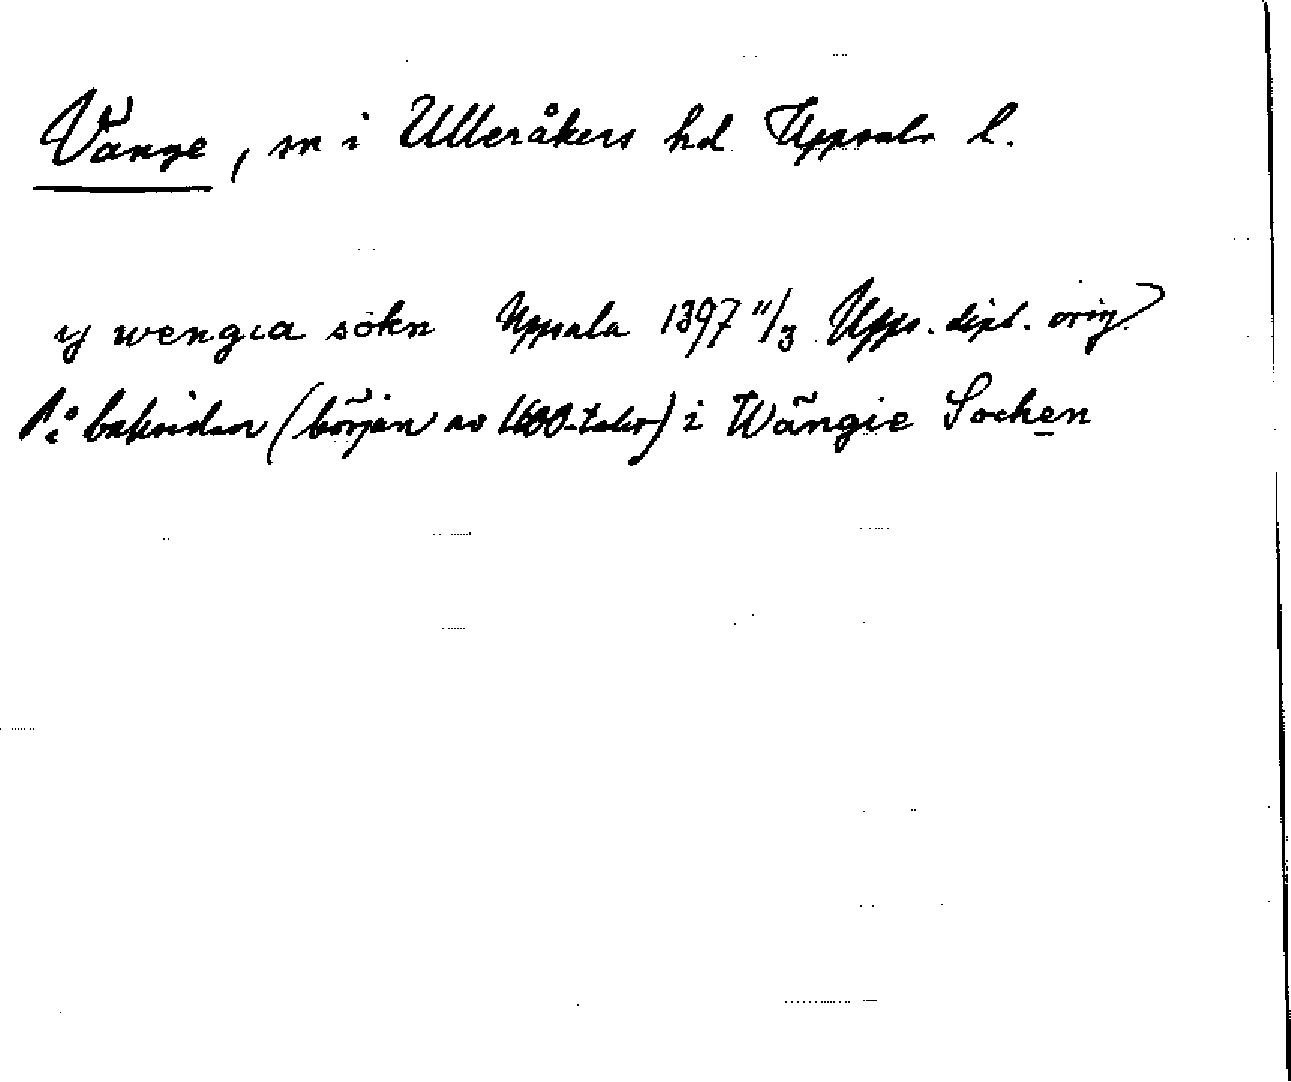 Vänge, sn i Ulleråkers hd Uppsala l.
y wengia sokn Uppsala 1397 11/3 Upps. dipl. orig.
På baksidan (början av 1600-talet) i Wängie Sochen